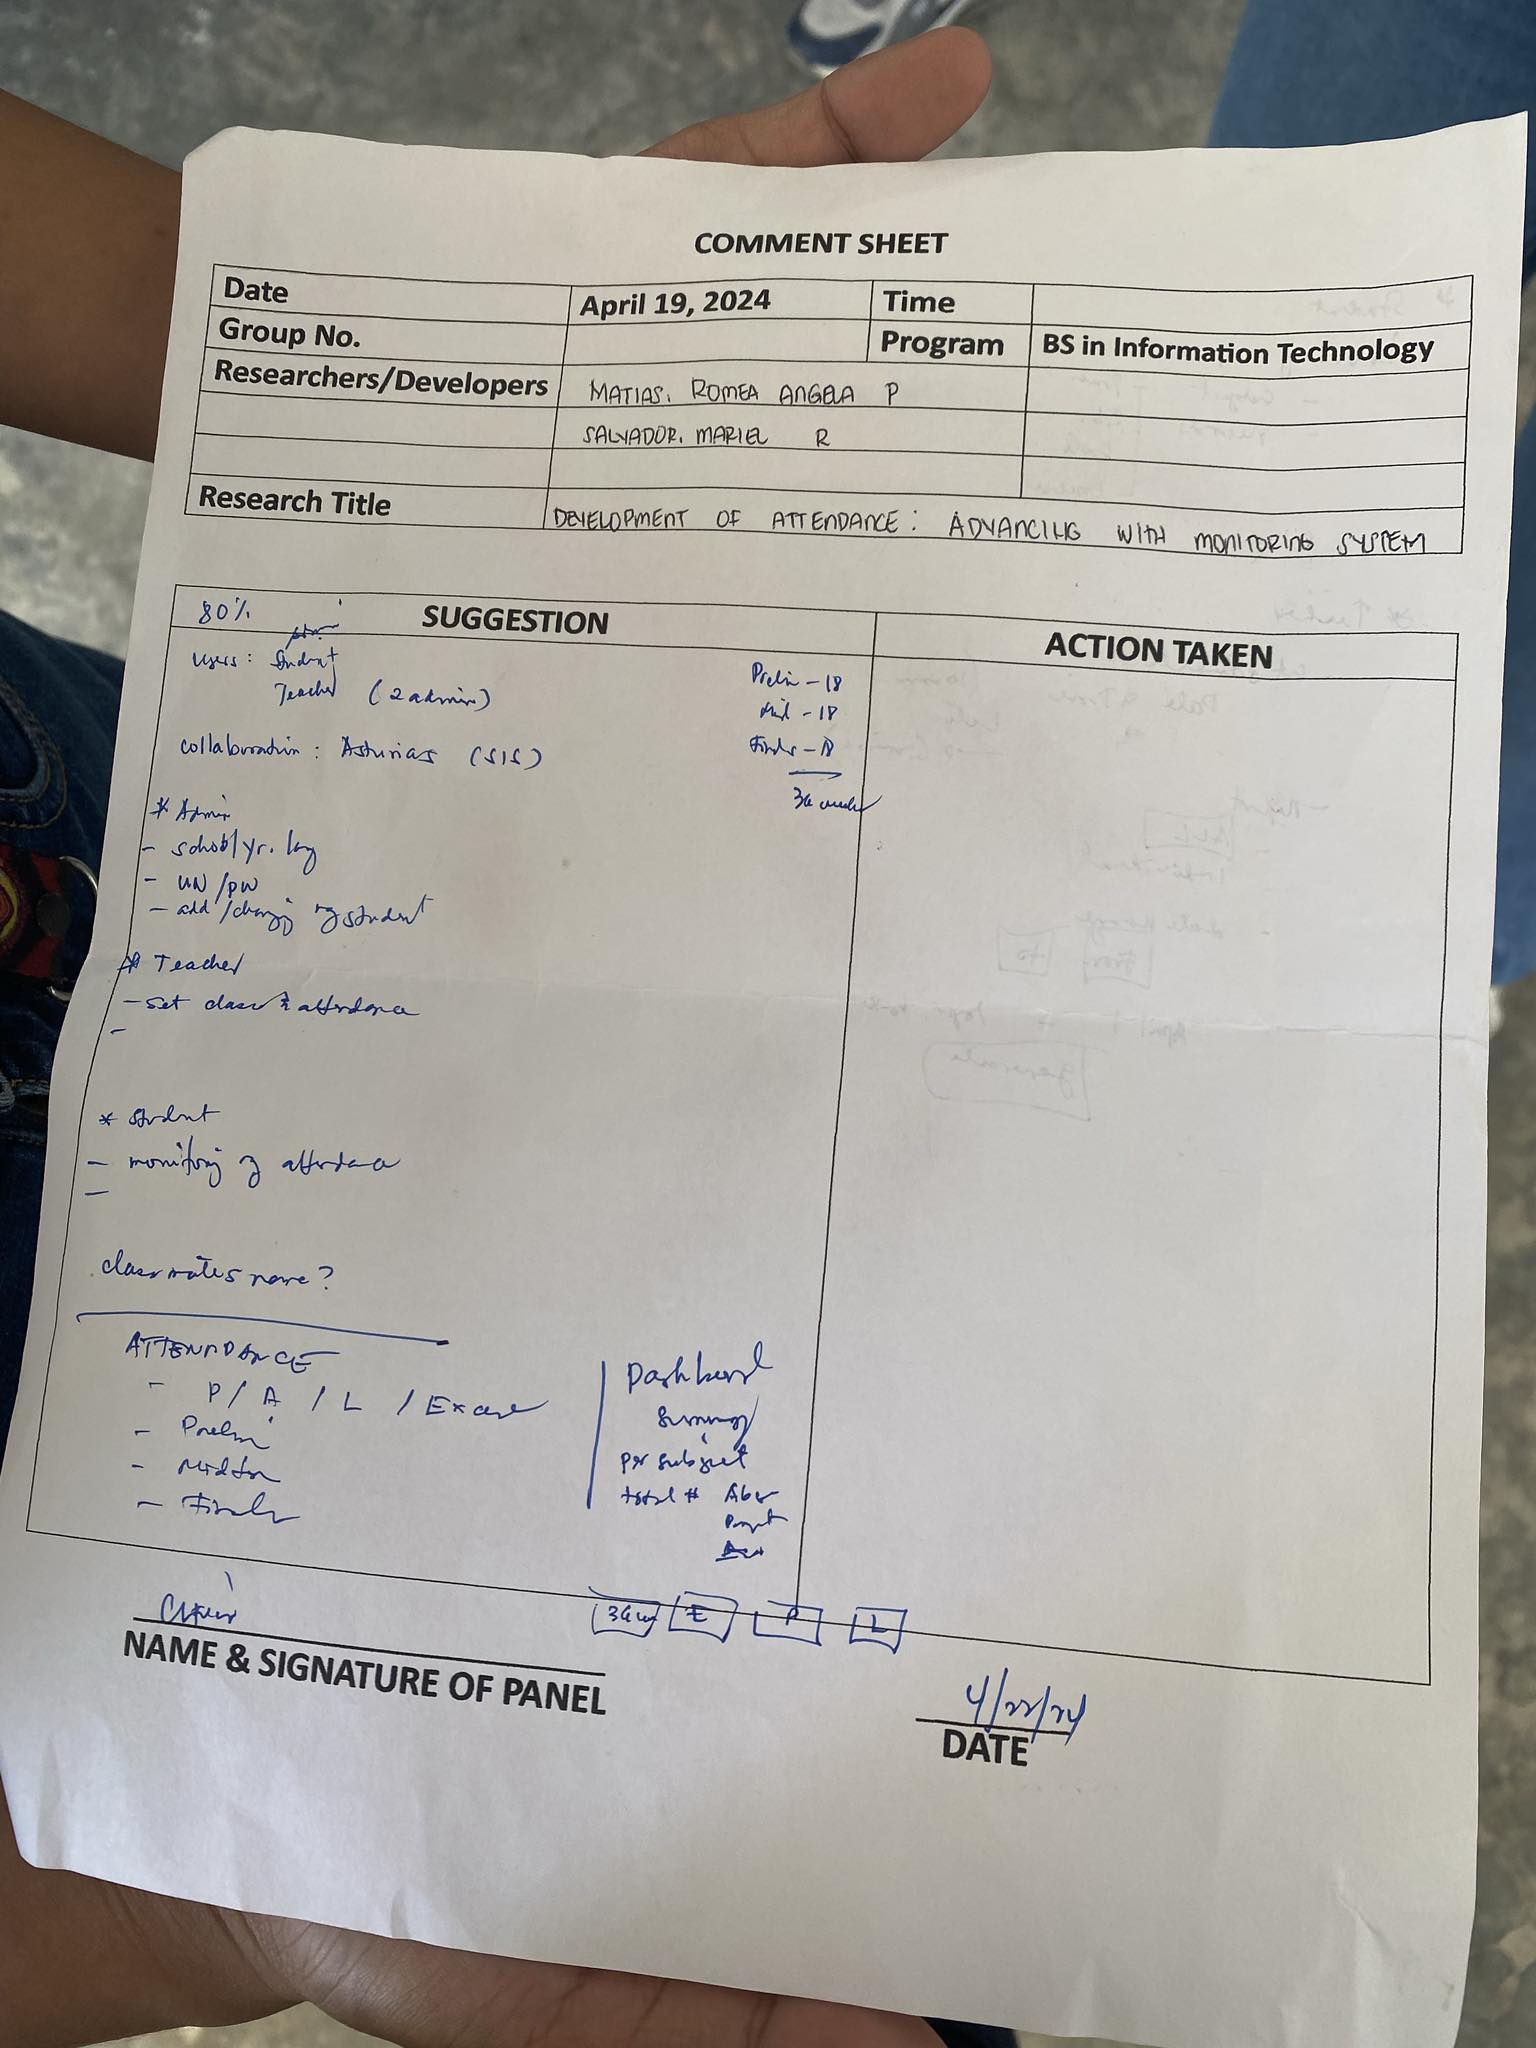 COMMENT SHEET
Date April 19, 2024 Time
Group No. Program BS in Information Technology
Researchers/Developers MATIAS, ROMEA ANGELA P
SALVADOR, MARIEL R
Research Title DEVELOPMENT OF ATTENDANCE: ADVANCING WITH MONITORING SYSTEM
80% SUGGESTION ACTION TAKEN
Users: Student
Teacher (2 admin)
Prelim - 18
Mid - 18
Finals - 18
collaboration: Asturias (SIS)
* Admin
- school/yr.
- UN/PW
- add/changing of student
* Teacher
- set class & attendance
-
* Student
- monitoring of attendance
-
classmates name?
ATTENDANCE
- P / A / L / Excuse
- Prelim
- Midterm
- Finals
Dashboard
Summary
per subject
total # Absent
Present
E P L
NAME & SIGNATURE OF PANEL
4/22/24
DATE